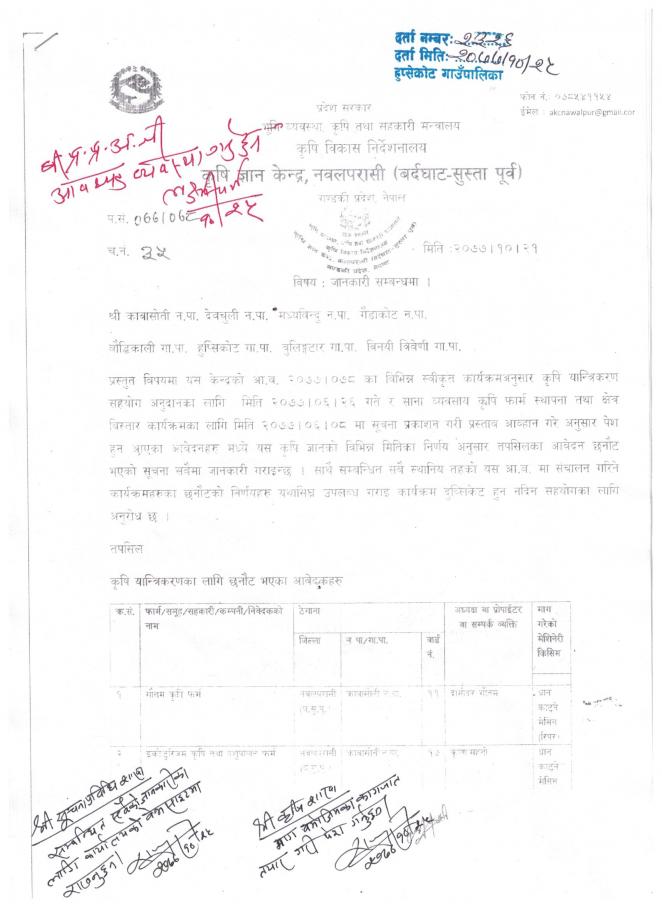 दर्ता नम्बर: २३२६
दर्ता मिति: २०७७/१०/२५
हुप्सेकोट गाउँपालिका
फोन नं.: ०७८५४११५४
ईमेल : akcnawalpur@gmail.com
प्रदेश सरकार
भूमि व्यवस्था, कृषि तथा सहकारी मन्त्रालय
कृषि विकास निर्देशनालय
कृषि ज्ञान केन्द्र, नवलपरासी (बर्दघाट-सुस्ता पूर्व)
गण्डकी प्रदेश, नेपाल
प.सं. ०७७/०७८
च.नं. ३५
मिति :२०७७।१०।२१
विषय : जानकारी सम्बन्धमा ।
श्री कावासोती न.पा. देवचुली न.पा. मध्यविन्दु न.पा. गैंडाकोट न.पा.
बौद्धिकाली गा.पा. हुप्सिकोट गा.पा. वुलिङ्गटार गा.पा. विनयी त्रिवेणी गा.पा.
प्रस्तुत विषयमा यस केन्द्रको आ.व. २०७७।०७८ का विभिन्न स्वीकृत कार्यक्रमअनुसार कृषि यान्त्रिकरण
सहयोग अनुदानका लागि मिति २०७७।०६।२६ गते र साना व्यवसाय कृषि फार्म स्थापना तथा क्षेत्र
विस्तार कार्यक्रमका लागि मिति २०७७।०६।०८ मा सूचना प्रकाशन गरी प्रस्ताव आव्हान गरे अनुसार पेश
हुन आएका आवेदनहरु मध्ये यस कृषि ज्ञानको विभिन्न मितिका निर्णय अनुसार तपसिलका आवेदन छनौट
भएको सूचना सवैमा जानकारी गराइन्छ । साथै सम्बन्धित सवै स्थानिय तहको यस आ.व. मा संचालन गरिने
कार्यक्रमहरुका छनौटको निर्णयहरु यथासिघ्र उपलब्ध गराइ कार्यक्रम दुप्सिकेट हुन नदिन सहयोगका लागि
अनुरोध छ ।
तपसिल
कृषि यान्त्रिकरणका लागि छनौट भएका आवेदकहरु
क्र.सं. फार्म/समूह/सहकारी/कम्पनी/निवेदकको नाम ठेगाना अध्यक्ष वा प्रोपाईटर वा सम्पर्क व्यक्ति माग गरेको मेशिनेरी किसिम
जिल्ला न पा/गा.पा. वार्ड नं.
१ गौतम कृषि फर्म नवलपरासी (ब.सु.पू.) कावासोती न.पा. ११ दामोदर गौतम धान काट्ने मेसिन (रिपर)
२ इकोटुरिजम कृषि तथा पशुपालन फर्म नवलपरासी कावासोती न.पा. १७ कृष्ण महतो धान काट्ने मेसिन